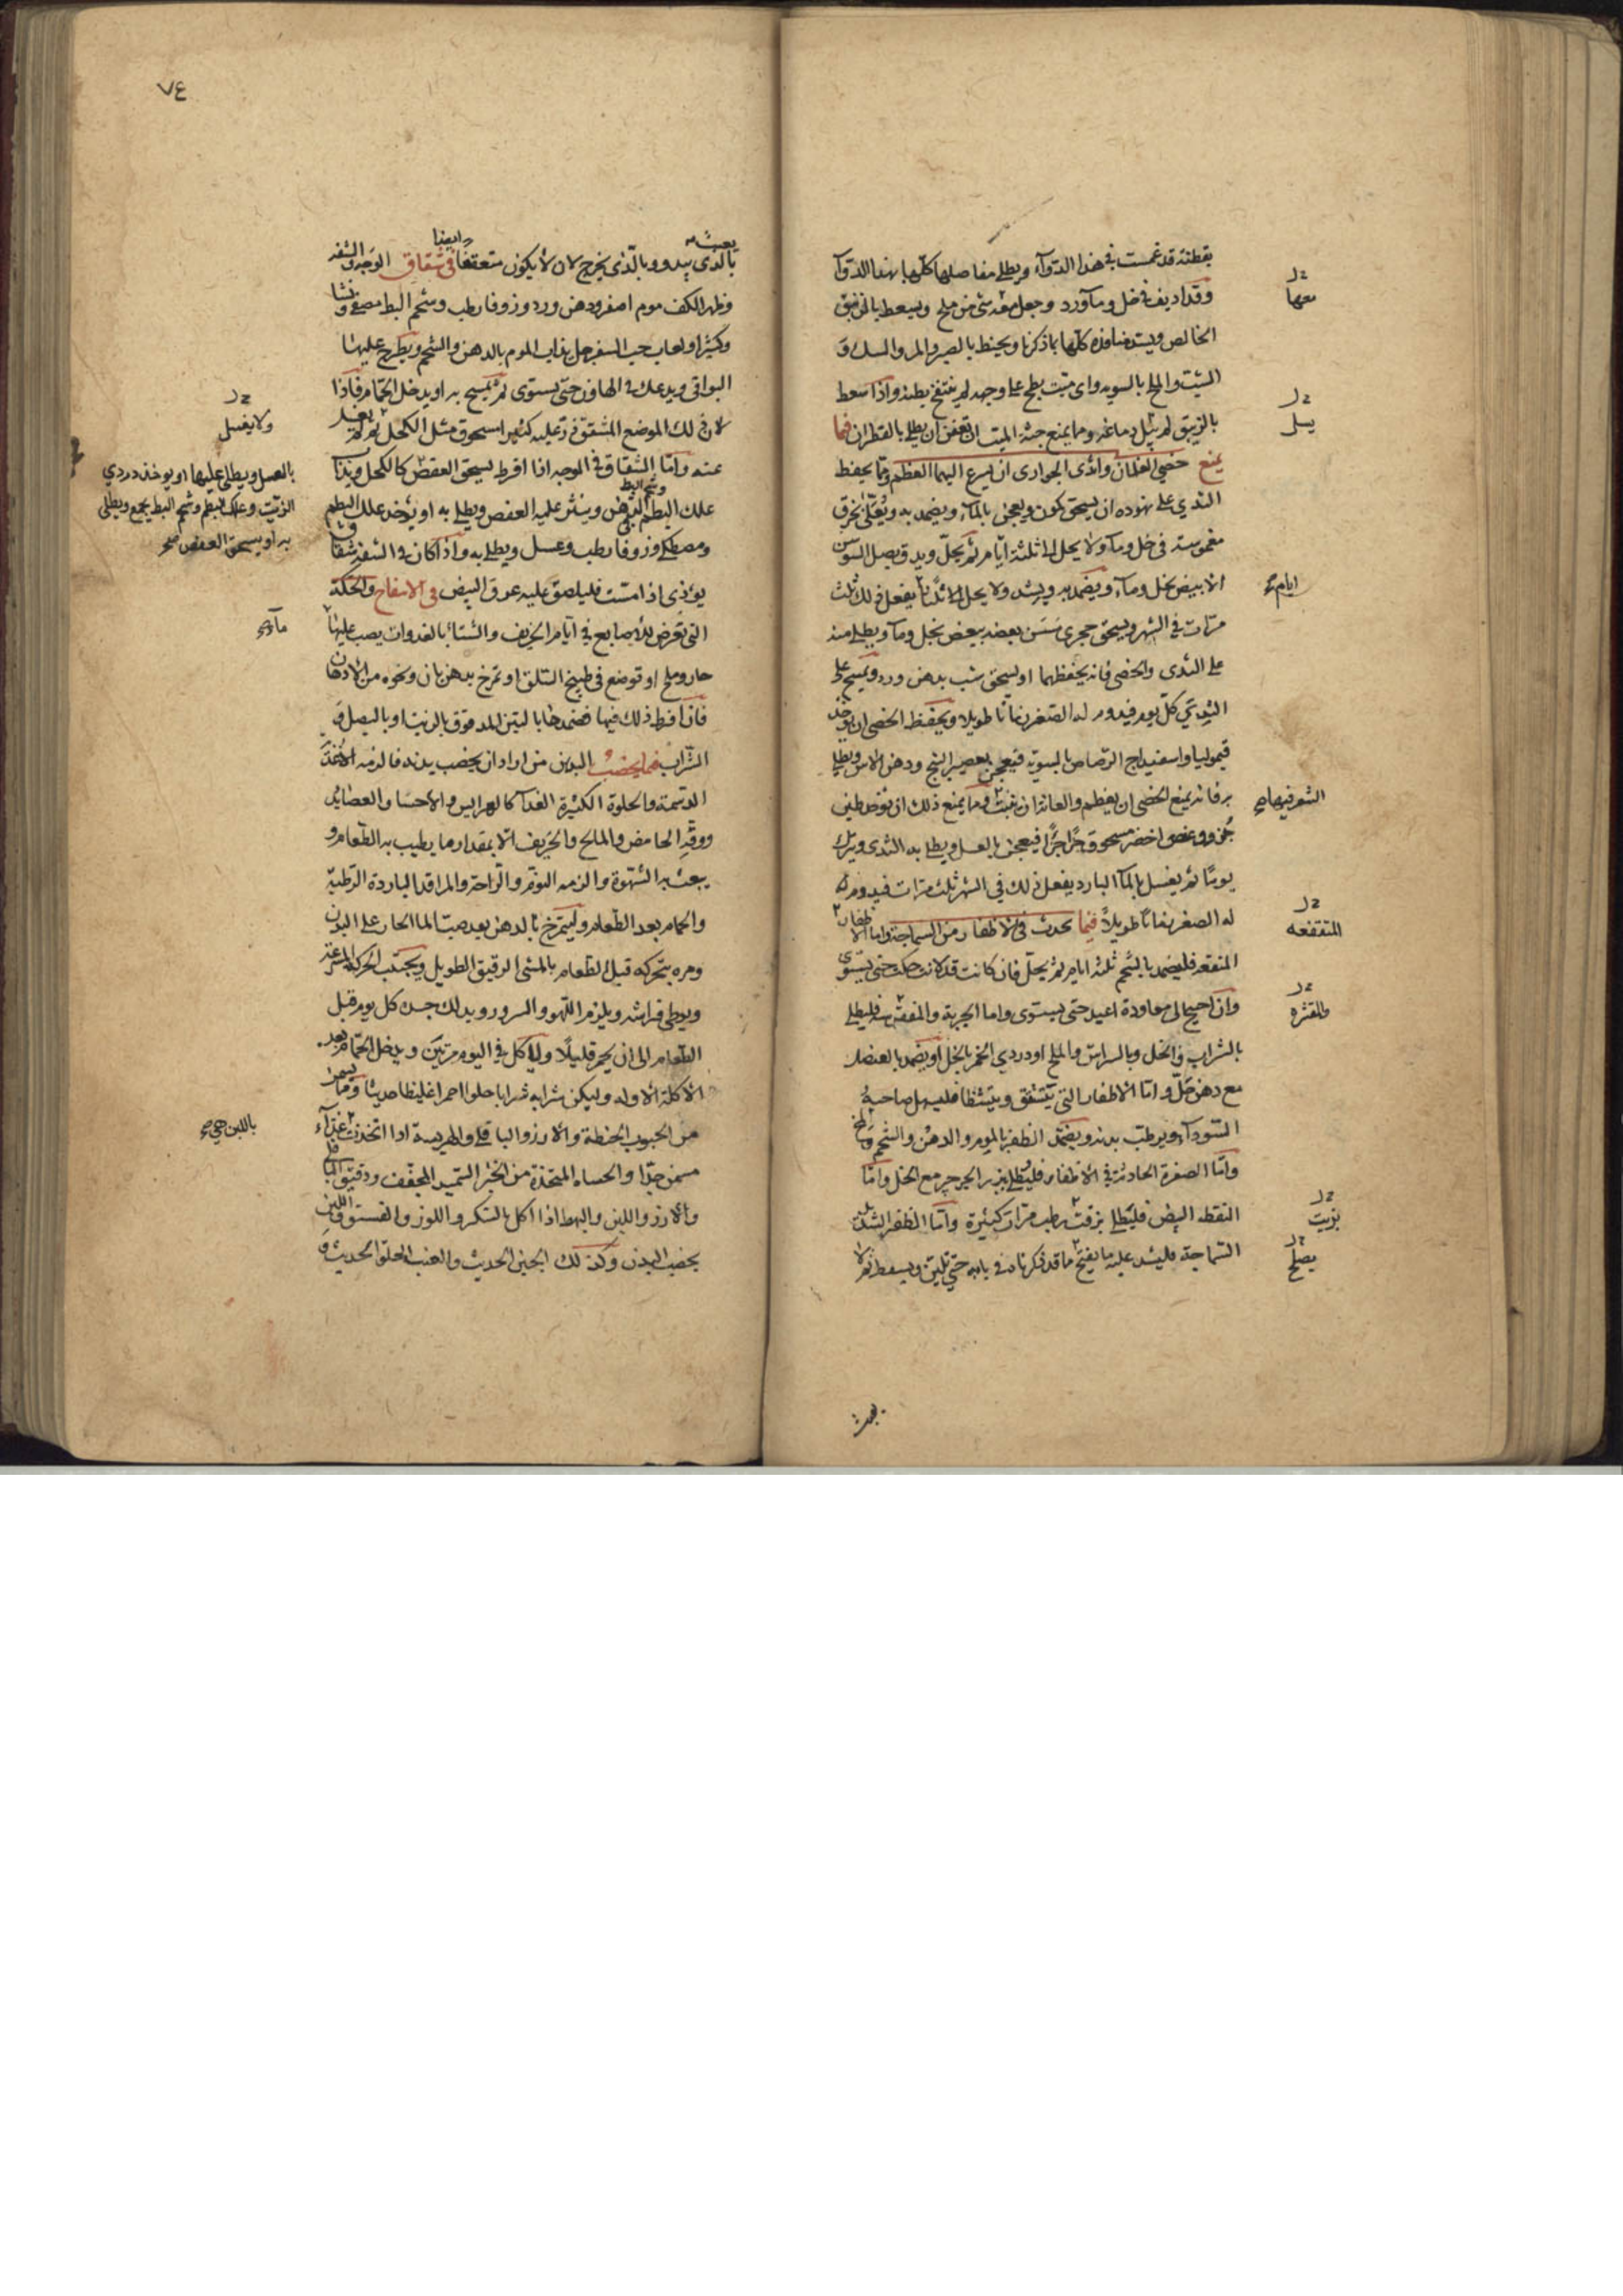 بقطنة قد غمست في هذا الدوآء ويطلى مفاصلها كلها بهذا الدوآ
وقد اديف في خل ومآورد وجعل معه شئ من ملح ويسعط بالزيبق
معها
الخالص ويسد منافذه كلها بما ذكرنا ويحنط بالصبر والمر والسك و
الشبت والملح بالسويه واى ميت بطح على وجهه لم ينتفخ بطنه واذا سعط
بالزيبق لم يسل دماغه ومما يمنع جثة الميت ان تعفن ان يطلى بالقطران فيما
يسل
يمنع خصى الغلمان وثدى الجوارى ان يسرع اليهما العظم ومما يحفظ
الثدي على نهوده ان يسحق كمون ويعجن بالمآء ويضمد به ويغطى بخرق
مغموسة في خل ومآء ولا يحل الى ثلثة ايام ثم يحل ويدق بصل السوسن
الابيض بخل ومآء ويضمد به ويشد ولا يحل الى ثلثا يفعل ذلك ثلث
ايام
مرات في الشهر ويسحق حجرى مسن بعضه ببعض بخل ومآ ويطلى منه
على الثدى والخصى فانه يحفظهما او يسحق شب بدهن ورد ويمسح على
الثدي كل يوم فيدوم له الصغر زمانا طويلا ويحفظ الخصى ان يوخذ
قيموليا واسفيداج الرصاص بالسوية فيعجن بعصير البنج ودهن الاس ويطلى
به فانه يمنع الخصى ان يعظم والعانة ان ينبت ومما يمنع ذلك ان يوخذ طين
الشعر فيها
جزو وعفص اخضر مسحوق جزا جزا فيعجن بالعسل ويطلى به الثدى ويترك
يوما ثم يغسل بالمآ البارد يفعل ذلك في الشهر ثلث مرات فيدوم
له الصغر زمانا طويلا فيما يحدث في الاظفار من السماجة واما الاظفار
المتقفعه
المنقعه فليضمد بالشحم ثلثة ايام ثم يحل فان كانت قد لانت حكت حتى يستوى
وان احتيج الى معاودة اعيد حتى يستوى واما الجربة والمقشره فليطلى
والمقشره
بالشراب والخل وبالسراش والملح او دردي الخمر بالخل او يضمد بالعنصل
مع دهن خل واما الاظفار التى يتشقق ويتشظا فليسهل صاحبه
السودآء ويرطب بدنه ويضمد الظفر بالموم والدهن والشحم والمخ
واما الصفرة الحادثة في الاظفار فليطلى ببزر الجرجير مع الخل واما
النقط البيض فليطلى بزفت رطب مرات كثيرة واما الظفر الشديد
بزيت
السماجة فليشد عليه ما يقبح ما قد ذكرناه في بابه حتى تلين ويسقط ثم لا
يصلح
٧٤
بالذى يبدو وبالذى يخرج لان لا يكون متعقفا في شقاق الوجه والشفه
ايضا
وظهر الكف موم اصفر ودهن ورد وزوفا رطب وشحم البط مصفى ونشا
وكثيرا ولعاب حب السفرجل يذاب الموم بالدهن والشحم ويطرح عليها
البواقى ويدعك في الهاون حتى يستوى ثم يمسح به او يدخل الحمام فاذا
لان ذلك الموضع المتشقق ذر عليه كثيرا مسحوق مثل الكحل ثم لم يغسل
ولا يغسل
عنه واما الشقاق في الوجه اذا افرط يسحق العفص كالكحل ويذاب
علك البطم بالدهن وينثر عليه العفص ويطلى به او يؤخذ علك البطم
وشحم البط
بالعسل ويطلى عليها او يوخذ دردي
الزيت وعلك البطم وشحم البط يجمع ويطلى
به او يسحق العفص
ومصطكى وزوفا رطب وعسل ويطلى به واذا كان في الشفة شقاق
يؤذى اذا مست فليلصق عليه عرق البيض في الانتفاخ والحكة
التى تعرض للاصابع في ايام الخريف والشتآ بالغدوات يصب عليها
مآء
حار وملح او توضع في طبيخ السلق او تمرخ بدهن بان ونحوه من الادهان
فان افرط ذلك فيها ضمدها بالتين المدقوق بالزيت او بالبصل و
الشراب فيما يخصب البدن من اراد ان يخصب بدنه فالزمه الاغذية
الدسمة والحلوة الكثيرة الغدآء كالهرايس والاحسا والعصايد
ووقه الحامض والمالح والحريف الا بمقدار ما يطيب به الطعام و
يبعث به الشهوة والزمه النوم والراحة والمراقد الباردة الرطبة
والحمام بعد الطعام وليتمرخ بالدهن بعد صب المآ الحار على البدن
ومره بتحركه قبل الطعام بالمشى الرقيق الطويل ويجتنب الحركة المسرعة
ويوطى فراشه ويلزم اللهو والسرور ويدلك جسده كل يوم قبل
الطعام الى ان يحمر قليلا ولياكل في اليوم مرتين ويدخل الحمام بعد
الاكلة الاولى وليكن شرابه شرابا حلوا احمر غليظا حديثا ومما يسمن
من الحبوب الحنطة والارز والباقلى والهريسة اذا اتخذت غذآء
باللبن
مسمن جدا والحساء المتخذة من الخبز السميد المجفف ودقيق الباقلى
والارز واللبن والبهط اذا اكل بالسكر واللوز والفستق واللبن
يخصب البدن وكذلك الجبن الحديث والعنب الحلو الحديث